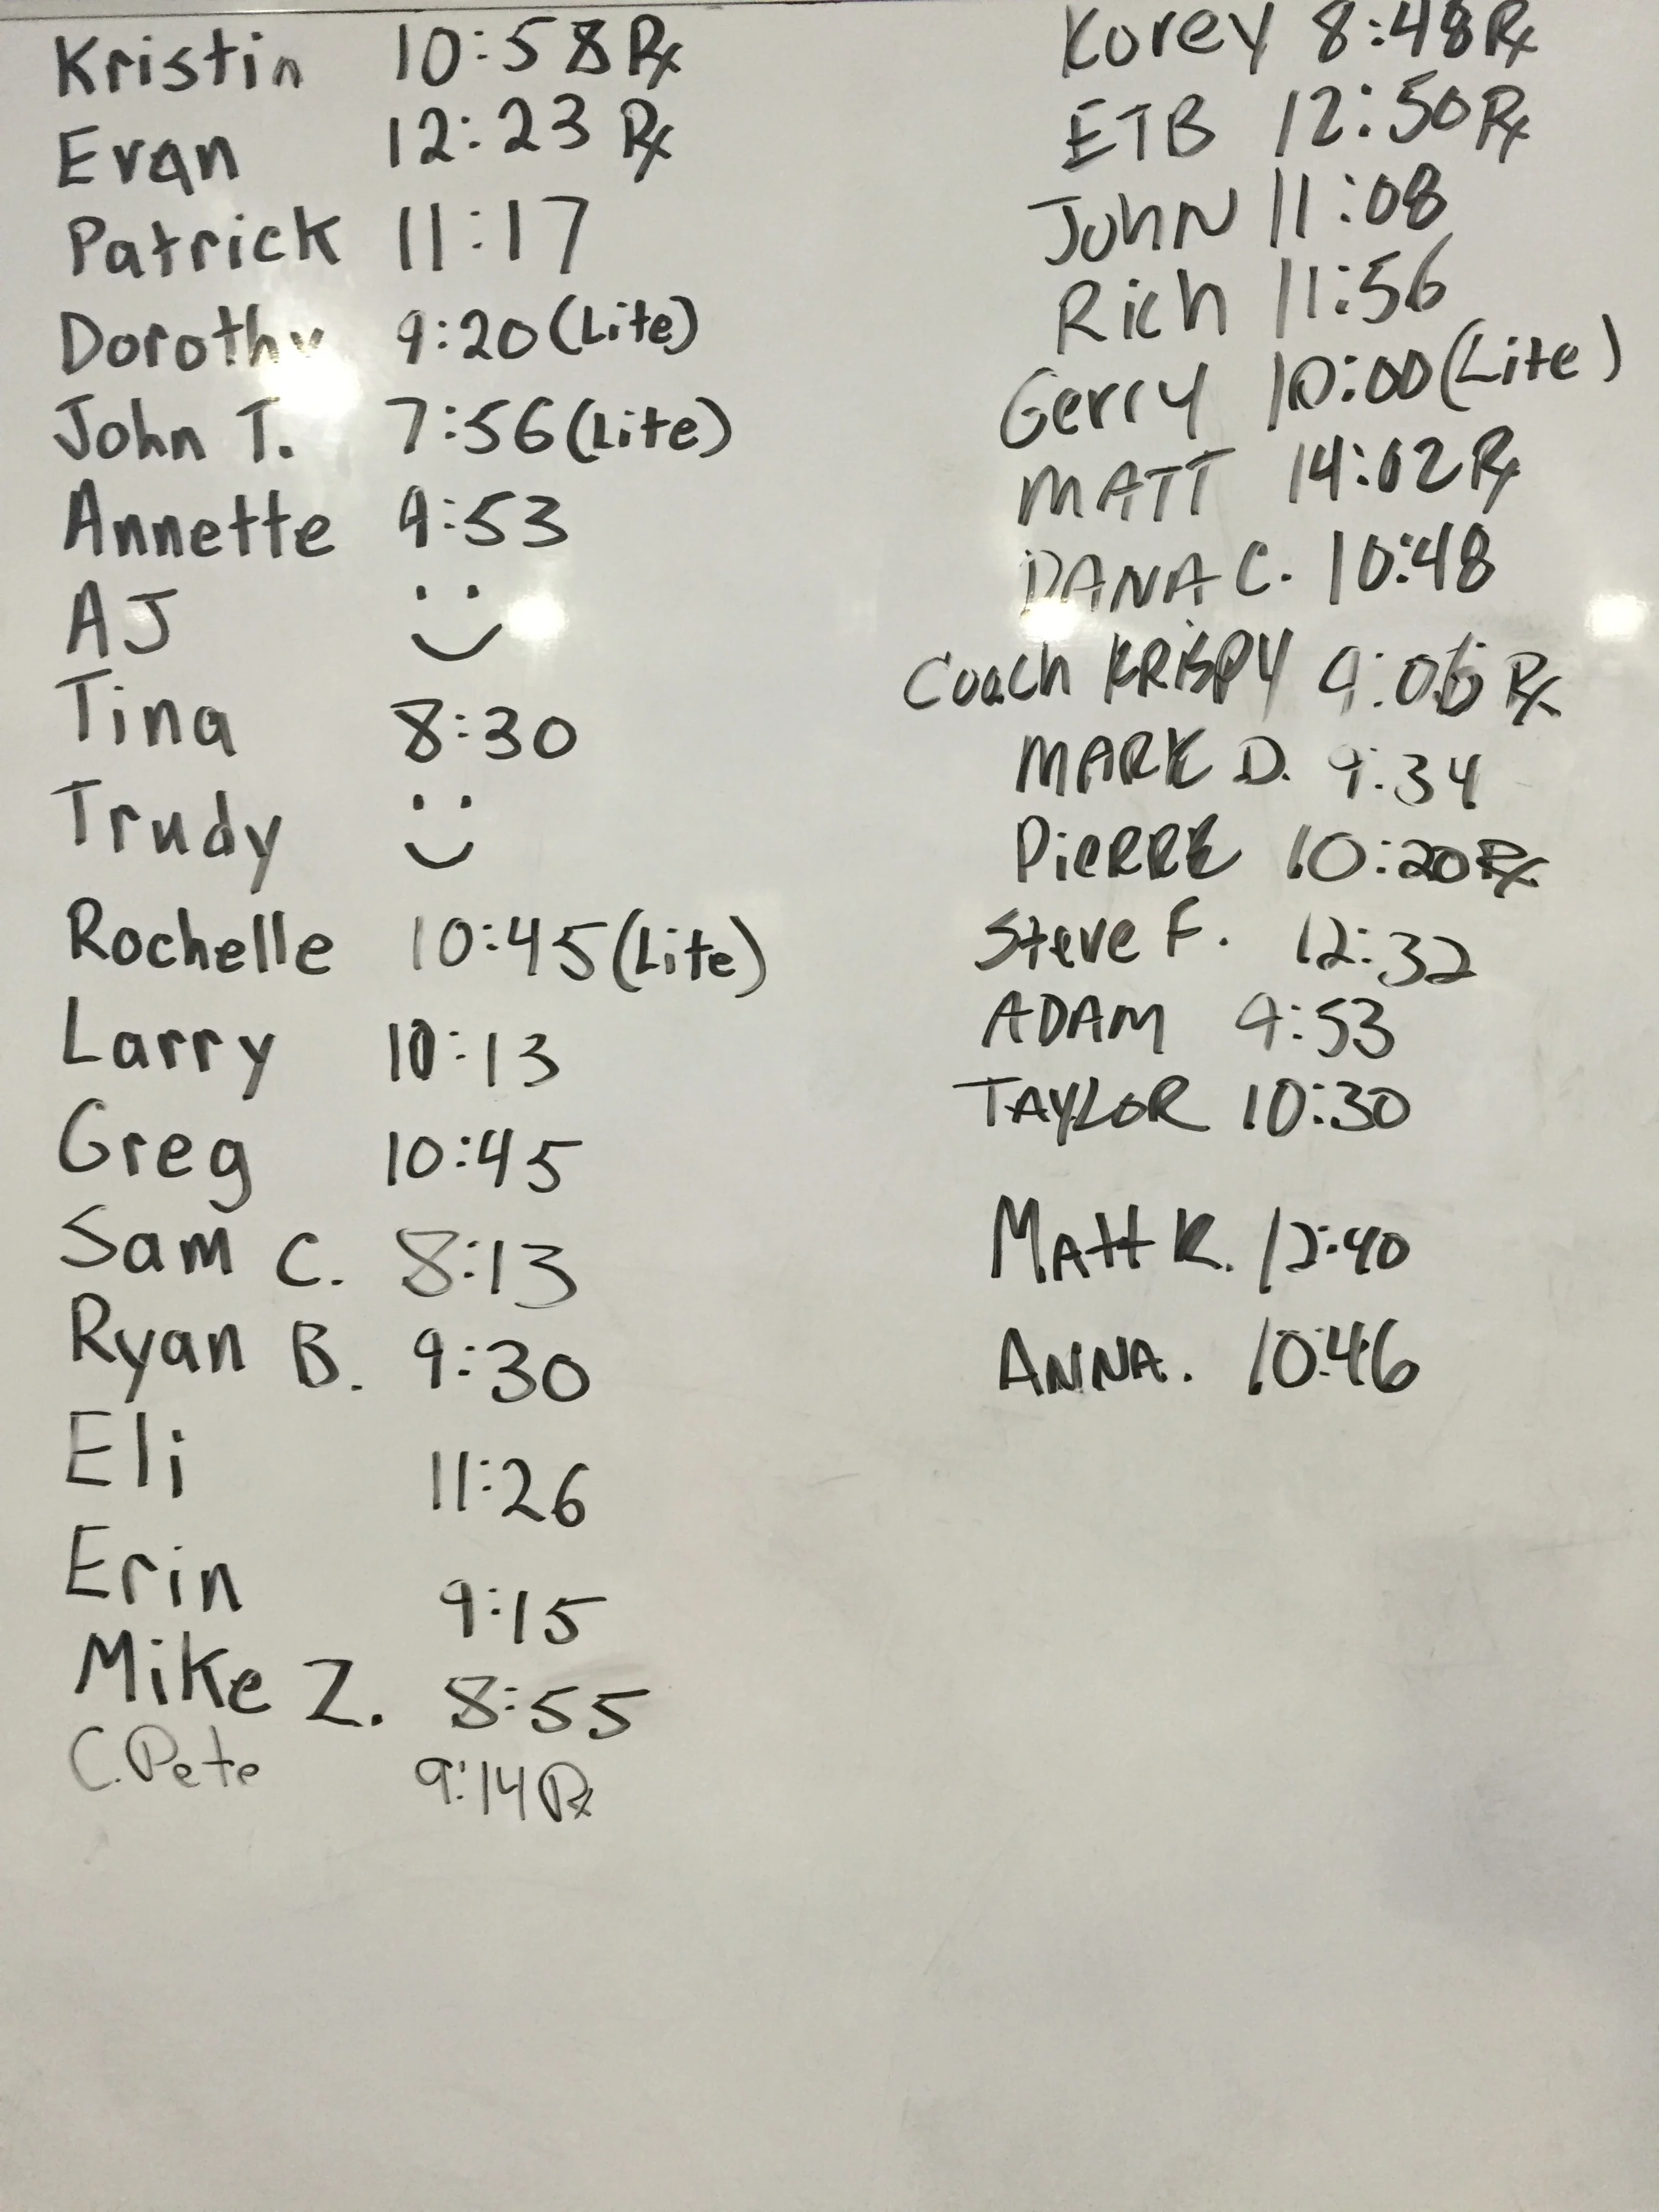 Kristin 10:58 Rx
Evan 12:23 Rx
Patrick 11:17
Dorothy 9:20 (Lite)
John T. 7:56 (Lite)
Annette 9:53
AJ
Tina 8:30
Trudy
Rochelle 10:45 (Lite)
Larry 10:13
Greg 10:45
Sam C. 8:13
Ryan B. 9:30
Eli 11:26
Erin 9:15
Mike Z. 8:55
C. Pete 9:14 Rx
Korey 8:48 Rx
ETB 12:50 Rx
JohN 11:08
Rich 11:56
Gerry 10:00 (Lite)
MATT 14:02 Rx
DANA C. 10:48
Coach KRiSPY 9:06 Rx
MARK D. 9:34
PieRRE 10:20 Rx
Steve F. 12:32
ADAM 9:53
TAYLOR 10:30
MAtt K. 12:40
ANNA. 10:46